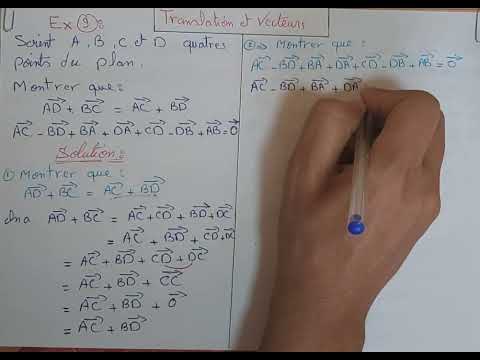 Ex 9:
Translation et Vecteurs
Soient A, B, C et D quatres
points du plan.
Montrer que:
AD→ + BC→ = AC→ + BD→
AC→ - BD→ + BA→ + DA→ + CD→ - DB→ + AB→ = 0→
Solution:
1) Montrer que:
AD→ + BC→ = AC→ + BD→
Ona AD→ + BC→ = AC→ + CD→ + BD→ + DC→
= AC→ + BD→ + CD→ + DC→
= AC→ + BD→ + CD→ + DC→
= AC→ + BD→ + CC→
= AC→ + BD→ + 0→
= AC→ + BD→
2) Montrer que:
AC→ - BD→ + BA→ + DA→ + CD→ - DB→ + AB→ = 0→
AC→ - BD→ + BA→ + DA→